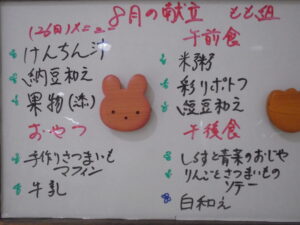 8月の献立 もも組
(26日)メニュー
けんちん汁
納豆和え
果物(添)
おやつ
手作りさつまいも
マフィン
牛乳
午前食
米粥
彩りポトフ
豆和え
午後食
しらすと青菜のおじや
りんごとさつまいもの
ソテー
白和え